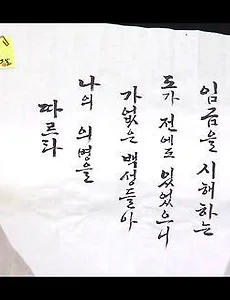 임금을 시해하는
도가 전에도 있었으니
가엾은 백성들아
나의 의병을
따르라